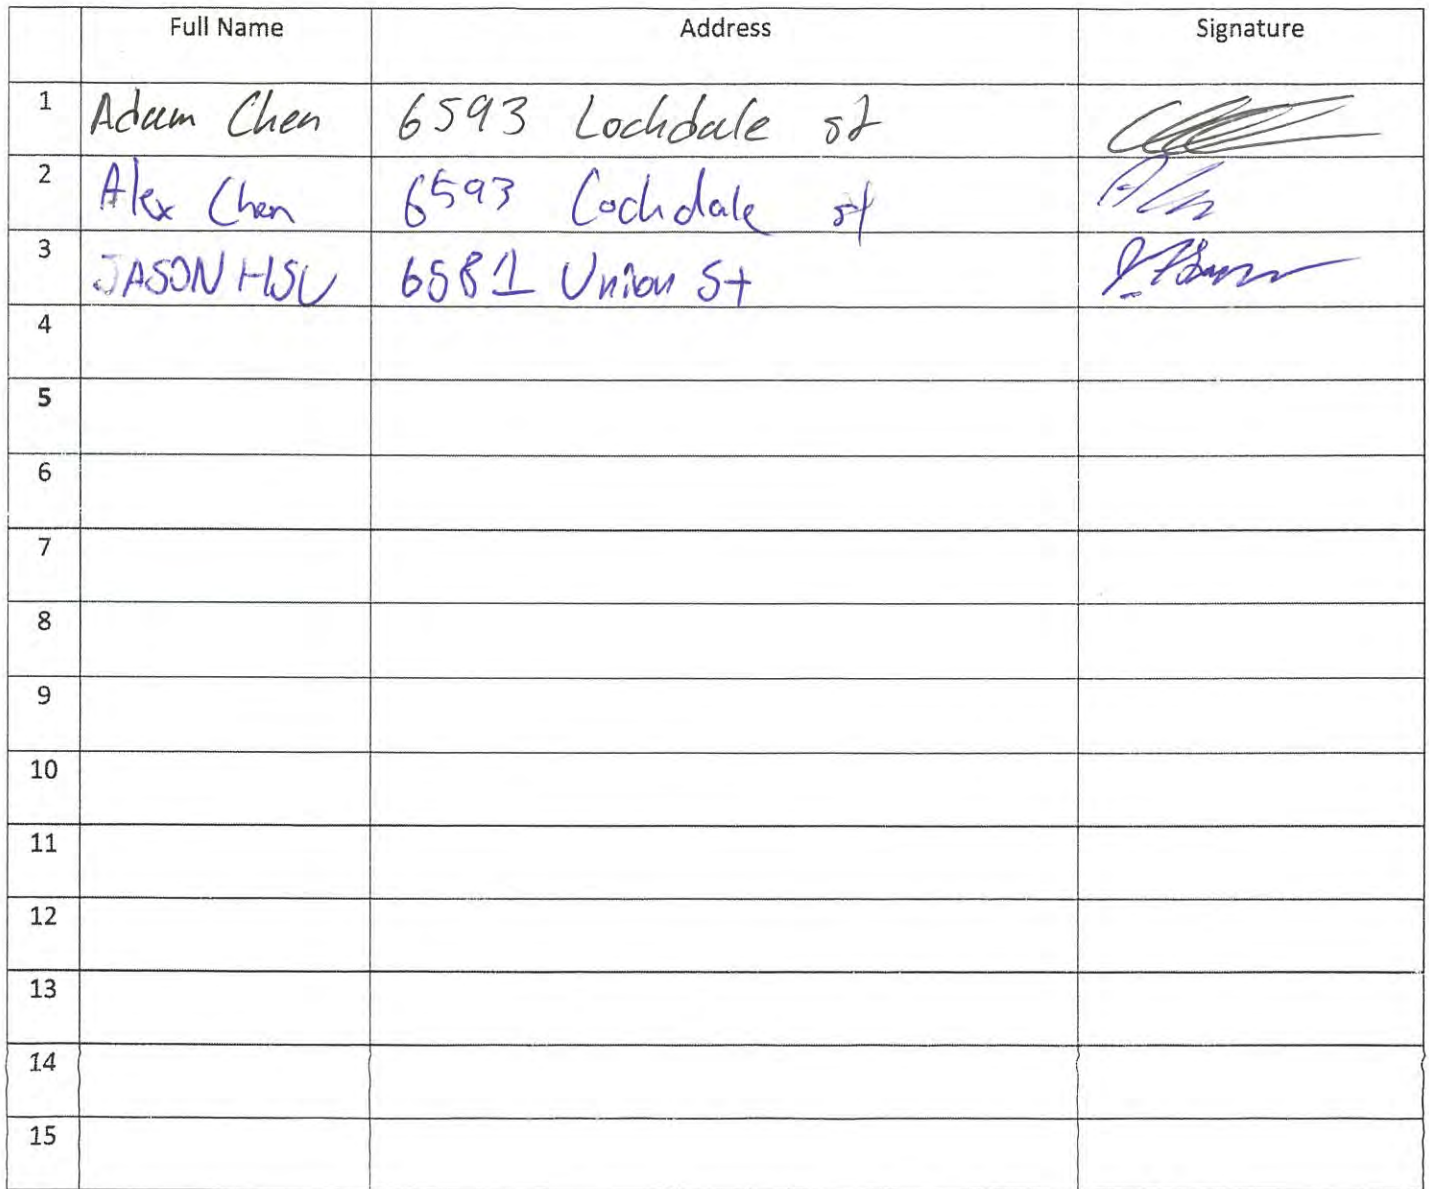 Full Name Address Signature
1 Adam Chen 6593 Lochdale st
2 Alex Chen 6593 Lochdale st
3 JASON HSU 6581 Union St
4
5
6
7
8
9
10
11
12
13
14
15